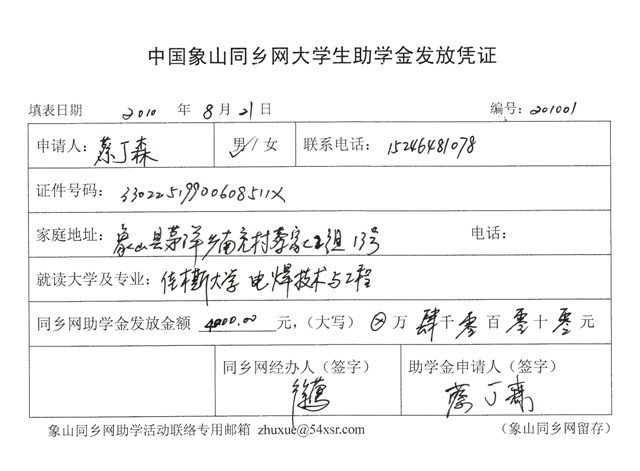 中国象山同乡网大学生助学金发放凭证
填表日期 2010 年 8 月 21 日 编号：201001
申请人：蔡丁森 男/女 联系电话：15246481078
证件号码：33022519900608511X
家庭地址：象山县茅洋乡南充村李家2组13号 电话：
就读大学及专业：佳木斯大学 电焊技术与工程
同乡网助学金发放金额 4000.00 元，（大写） ⊗ 万 肆 千 零 百 零 十 零 元
同乡网经办人（签字） 助学金申请人（签字）
蔡丁森
象山同乡网助学活动联络专用邮箱 zhuxue@54xsr.com （象山同乡网留存）